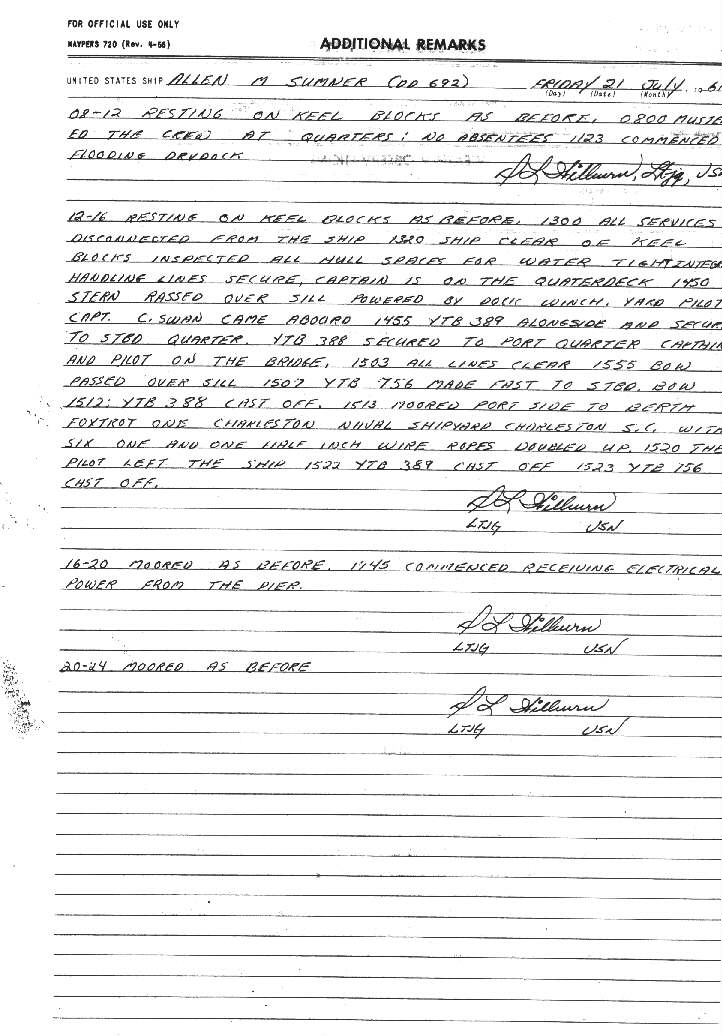 FOR OFFICIAL USE ONLY
NAVPERS 720 (Rev. 4-56)
ADDITIONAL REMARKS
UNITED STATES SHIP ALLEN M SUMNER (DD 692) FRIDAY 21 JULY 1961
(Day) (Date) (Month)
08-12 RESTING ON KEEL BLOCKS AS BEFORE. 0800 MUSTE
ED THE CREW AT QUARTERS: NO ABSENTEES 1123 COMMENCED
FLOODING DRYDOCK
S L Hilburn, Ltjg, US
12-16 RESTING ON KEEL BLOCKS AS BEFORE. 1300 ALL SERVICES
DISCONNECTED FROM THE SHIP 1320 SHIP CLEAR OF KEEL
BLOCKS INSPECTED ALL HULL SPACES FOR WATER TIGHTINTEGR
HANDLING LINES SECURE, CAPTAIN IS ON THE QUATERDECK 1450
STERN PASSED OVER SILL POWERED BY DOCK WINCH. YARD PILOT
CAPT. C. SWAN CAME ABOURD 1455 YTB 389 ALONGSIDE AND SECUR
TO STBD QUARTER. YTB 388 SECURED TO PORT QUARTER CAPTAIN
AND PILOT ON THE BRIDGE, 1503 ALL LINES CLEAR 1555 BOW
PASSED OVER SILL 1507 YTB 756 MADE FAST TO STBD. BOW
1512: YTB 388 CAST OFF. 1513 MOORED PORT SIDE TO BERTH
FOXTROT ONE CHARLESTON NAVAL SHIPYARD CHARLESTON S.C. WITH
SIX ONE AND ONE HALF INCH WIRE ROPES DOUBLED UP. 1520 THE
PILOT LEFT THE SHIP 1522 YTB 389 CAST OFF 1523 YTB 756
CAST OFF.
S L Hilburn
LTJG USN
16-20 MOORED AS BEFORE. 1745 COMMENCED RECEIVING ELECTRICAL
POWER FROM THE PIER.
S L Hilburn
LTJG USN
20-24 MOORED AS BEFORE
S L Hilburn
LTJG USN